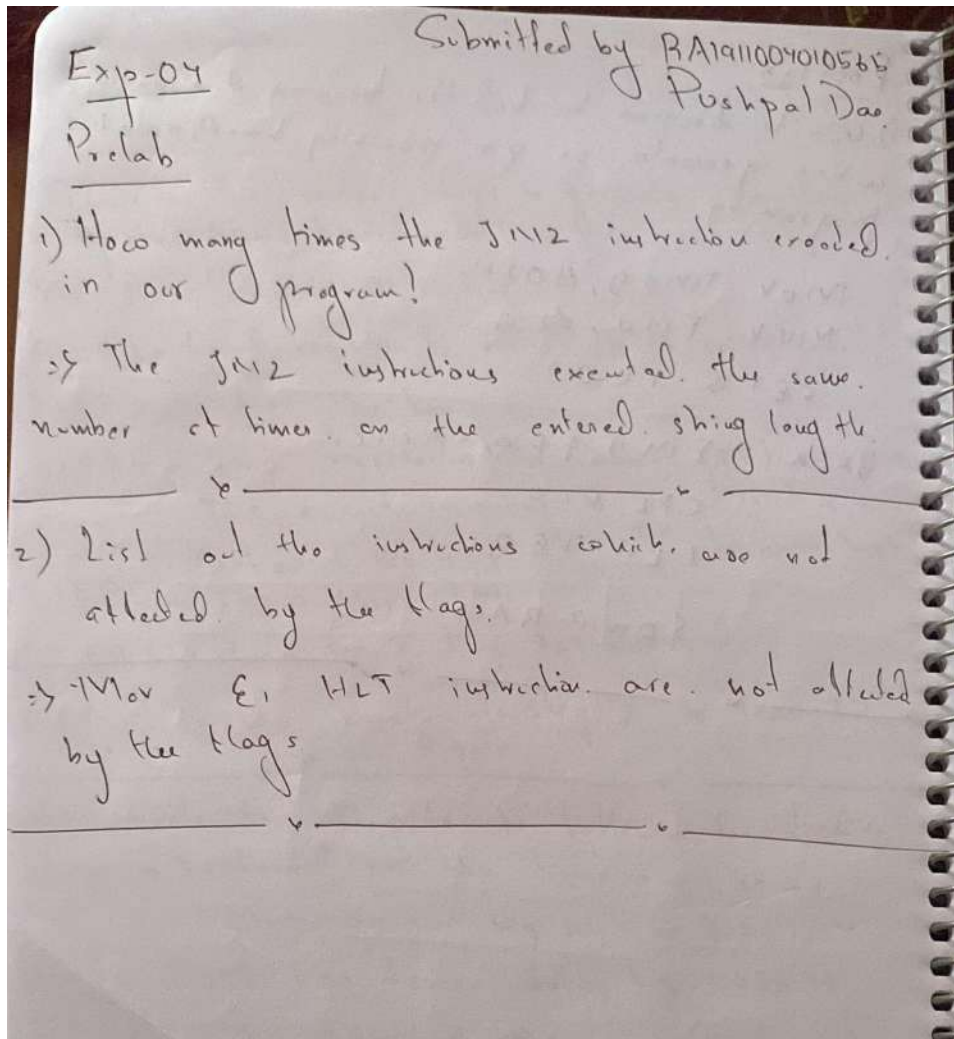 Submitted by RA1911004010565
Pushpal Das
Exp-04
Prelab
1) How many times the JNZ instruction executed
in our program?
=> The JNZ instructions executed the same
number of times as the entered string length
2) List out the instructions which are not
affected by the flags.
=> MOV & HLT instruction are not affected
by the flags